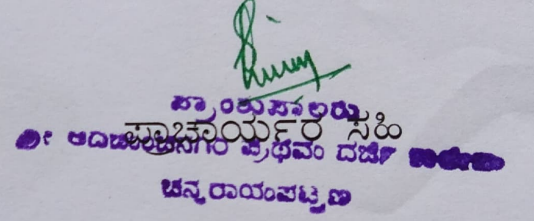 ಪ್ರಾಂಶುಪಾಲರು
ಪ್ರಾಚಾರ್ಯರ ಸಹಿ
ಶ್ರೀ ಆದಿಚುಂಚನಗಿರಿ ಪ್ರಥಮ ದರ್ಜೆ
ಚನ್ನರಾಯಪಟ್ಟಣ